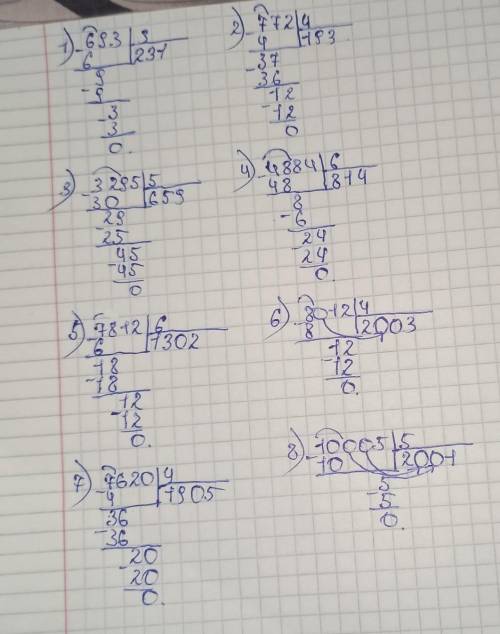 1) -693 | 3
6 | 231
-9
9
-3
3
0.
2) -772 | 4
4 | 193
-37
36
-12
12
0
3) -3295 | 5
30 | 659
-29
25
-45
45
0
4) -4884 | 6
48 | 814
-8
6
-24
24
0.
5) -7812 | 6
6 | 1302
-18
18
-12
12
0.
6) -8012 | 4
8 | 2003
-12
12
0.
7) -7620 | 4
4 | 1905
-36
36
-20
20
0.
8) -10005 | 5
10 | 2001
-5
5
0.